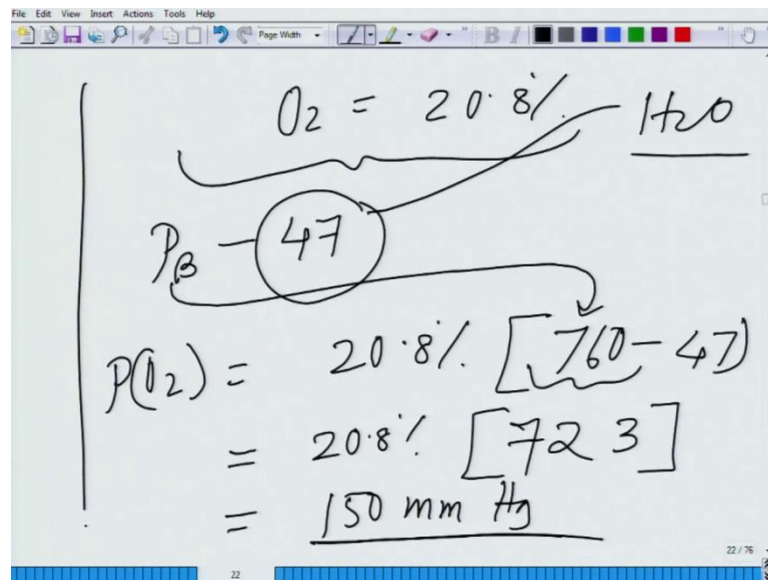 File Edit View Insert Actions Tools Help
Page Width B I
O2 = 20.8% H2O
PB - 47
P(O2) = 20.8% [760-47)
= 20.8% [723]
= 150 mm Hg
22 / 76
22